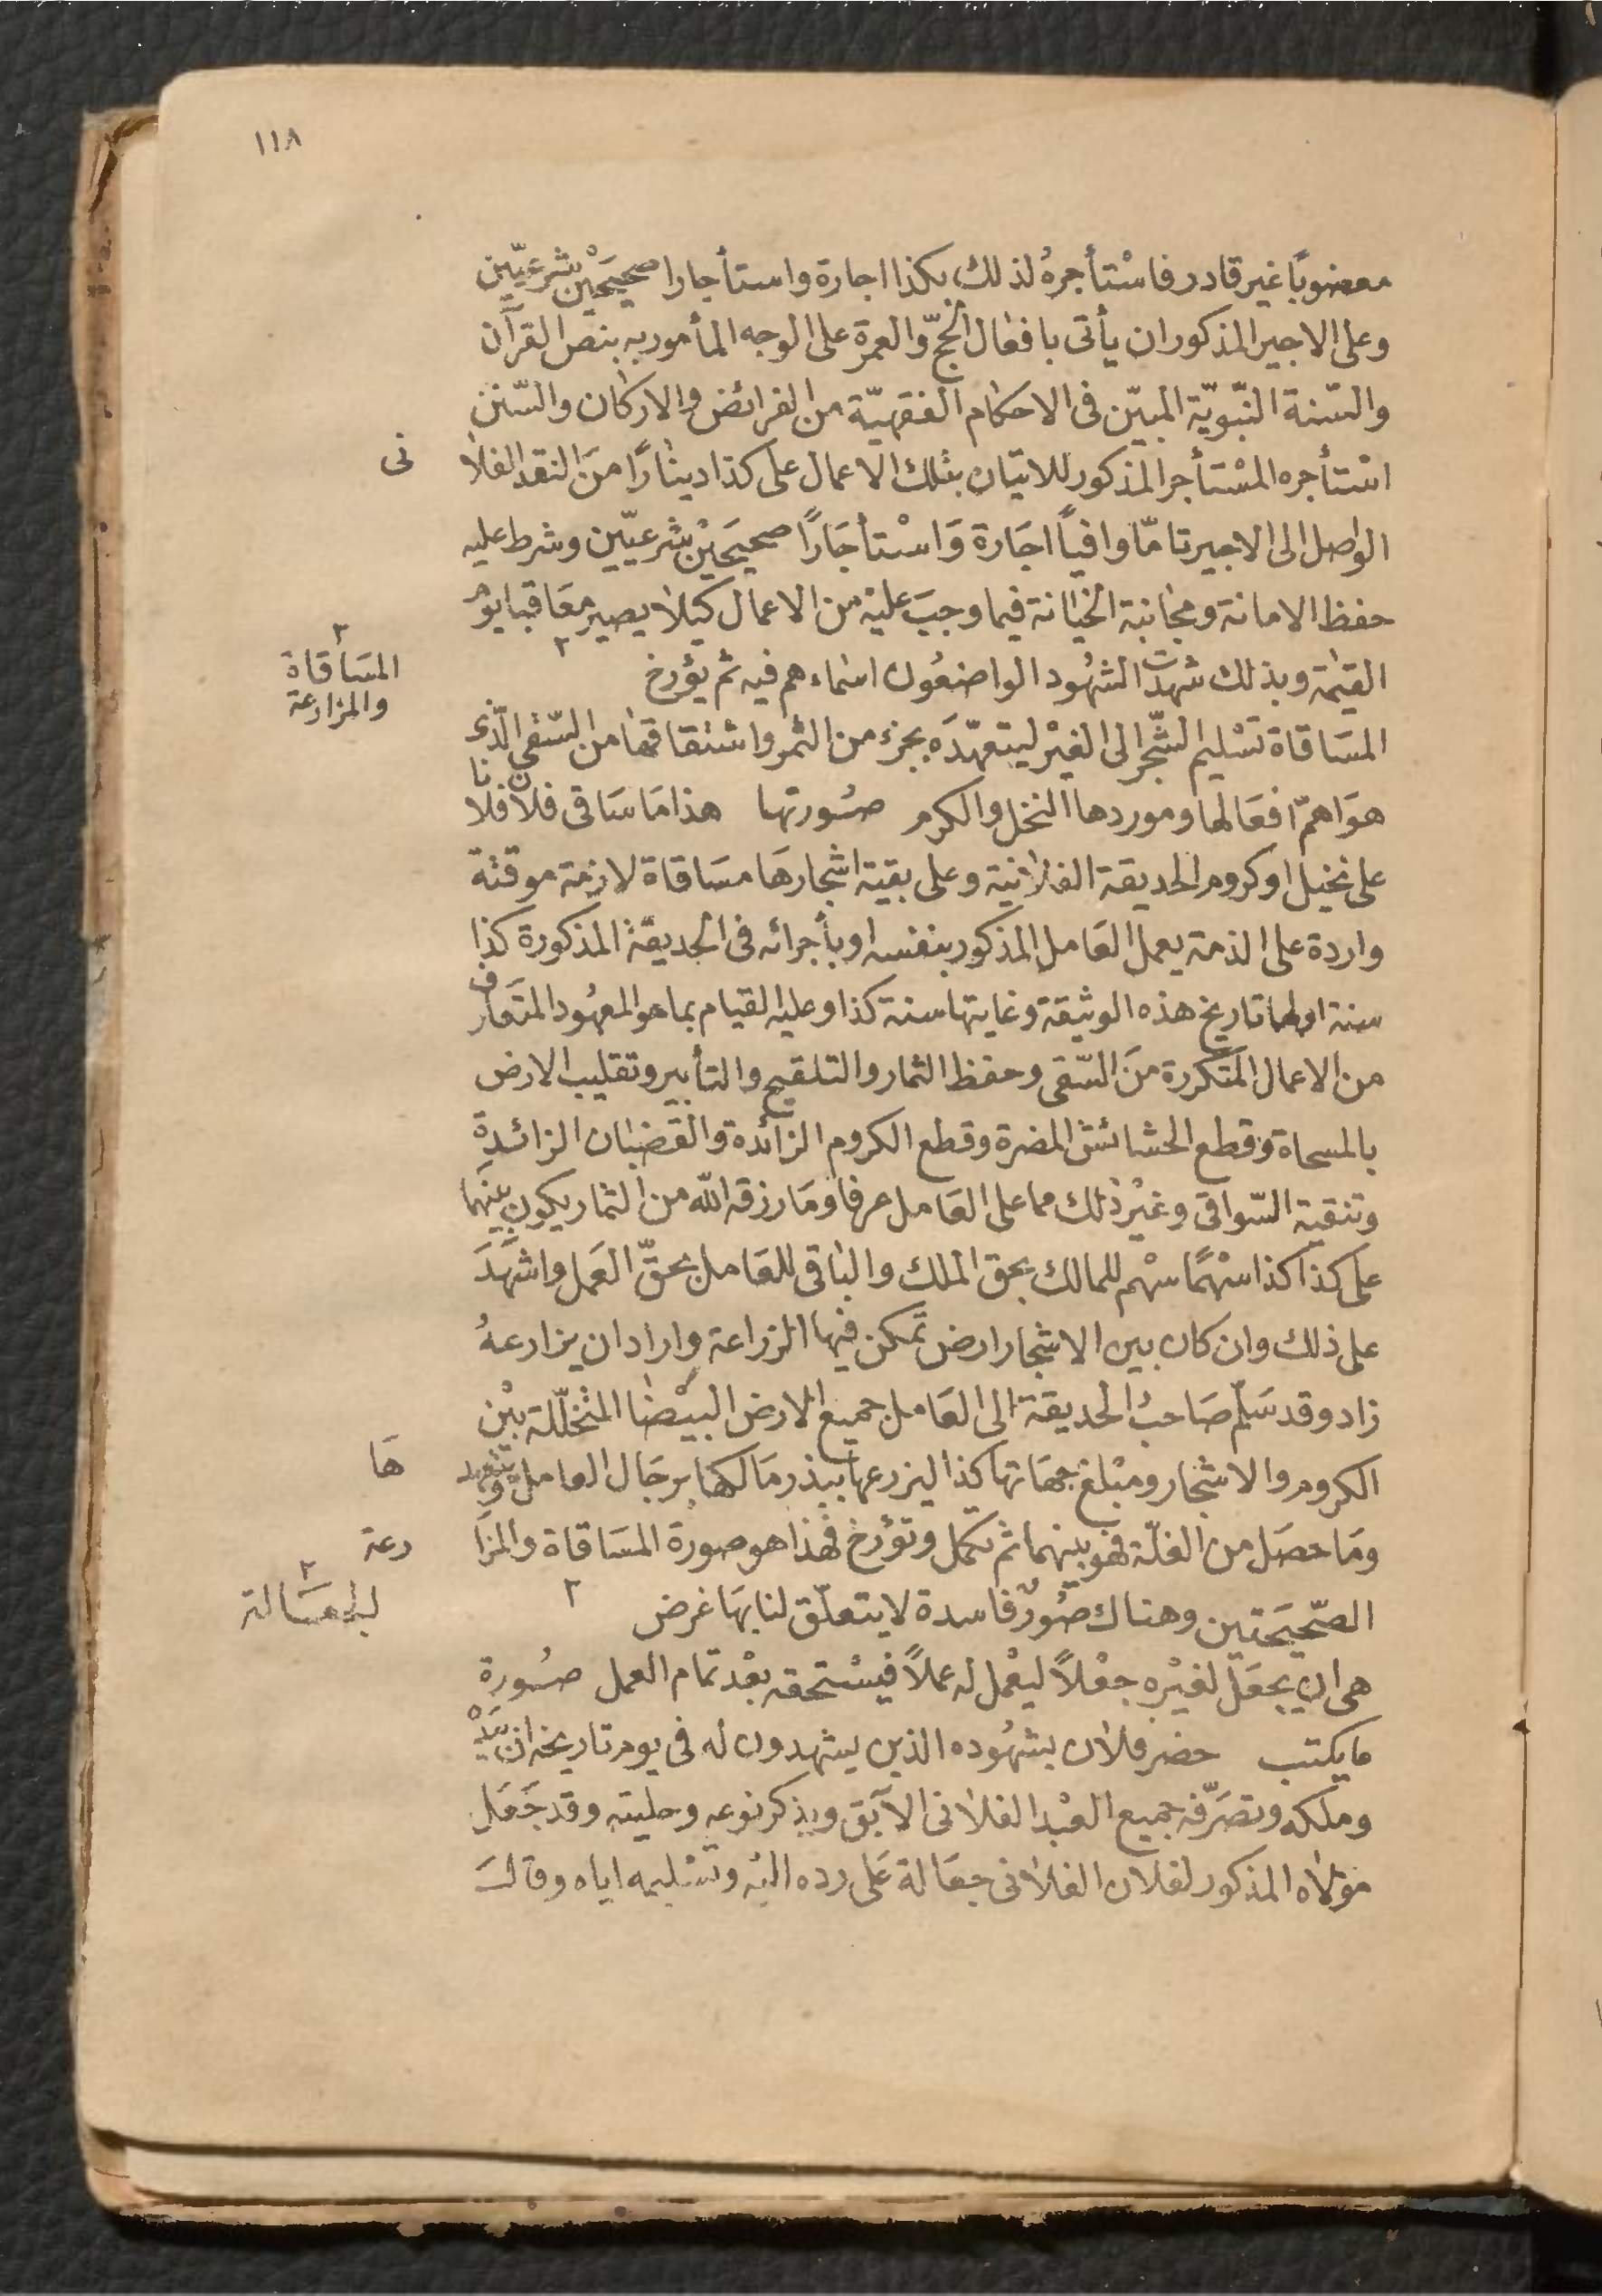 ١١٨
معضوبًا غير قادر فاسْتأجرهُ لذلك بكذا اجارة واستأجارا صحيحَيْن شرعيّين
وعلى الاجير المذكور ان يأتى بافعال الحجّ والعمرة على الوجه المأمور به بنص القرآن
والسّنة النّبويّة المبيّن فى الاحكام الفقهيّة من الفرائض والاركان والسّنن
استأجره المسْتأجر المذكور للاتيان بتلك الاعمال على كذا دينارًا منَ النقد الفلا نى
الواصل الى الاجير تامّا وافيًا اجَارة وَاسْتأجَارًا صحيحَيْن شرعيّين وشرط عليه
حفظ الامانة ومجانبة الخيانة فيما وجبَ عليْه من الاعمال كيلا يصير معَاقبا يوْم
القيٰمة وبذلك شهدت الشهُود الواضعُون اسماءهم فيه ثم يؤرخ
المسَاقاة
والمزارعة
المسَاقاة تسْليم الشّجر الى الغيْر ليتعهّدَه بجزء من الثمر واشتقاقها من السّقى الّذى
هوَ اهمّ افعَالها وموردها النخل والكرم صُورتها هذا مَا سَاقى فلان فلانا
على نخيل او كروم الحديقة الفلانية وعلى بقية اشجارهَا مسَاقاة لازمة موقتة
واردة على الذمة يعمل العَامل المذكور بنفسه او بأجرائه فى الحديقة المذكورة كذا
سنة اولها تاريخ هذه الوثيقة وغايتها سنة كذا وعليه القيام بما هو المعهُود المتَعارف
من الاعمال المتكررة منَ السّقى وحفظ الثمار والتلقيح والتأبير وتقليب الارض
بالمسحاة وقطع الحشائش المضرة وقطع الكروم الزائدة والقضبان الزائدة
وتنقية السّواقى وغيْر ذلك مما على العَامل عرفا ومَا رزقه الله من الثمار يكون بينَهما
على كذا كذا سهْمًا سهْم للمالك بحق الملك والباقى للعَامل بحقّ العَمل واشهَدَ
على ذلك وان كان بين الاشجار ارض تمكن فيها الزراعة واراد ان يزارعهُ
زاد وقد سَلّم صَاحبُ الحديقة الى العَامل جميع الارض البيْضَا المتخلّلة بيْن
الكروم والاشجار ومبْلغ جهَاتها كذا ليزرعها ببذر مَالكها برجَال العامل وبتعهد هَا
ومَا حصَل من الغلّة فهو بينهما ثم تكمل وتؤرخ فهذا هو صورة المسَاقاة والمزَا رعة
الصّحيحَتين وهناك صُورٌ فاسدة لا يتعلّق لنا بهَا غرض
الجعَالة
هى ان يجعَل لغيْره جعْلاً ليعْمل له عملاً فيسْتحقه بعْد تمام العمل صُورة
ما يكتب حضر فلان بشهُوده الذين يشهدون له فى يوم تاريخه ان بيَدْه
وملكه وتصَرّفه جميع العبْد الفلانى الآبق ويذكر نوعه وحليته وقد جَعَل
موْلاه المذكور لفلان الفلانى جعَالة عَلى رده اليْه وتسْليمه اياه وقالَ